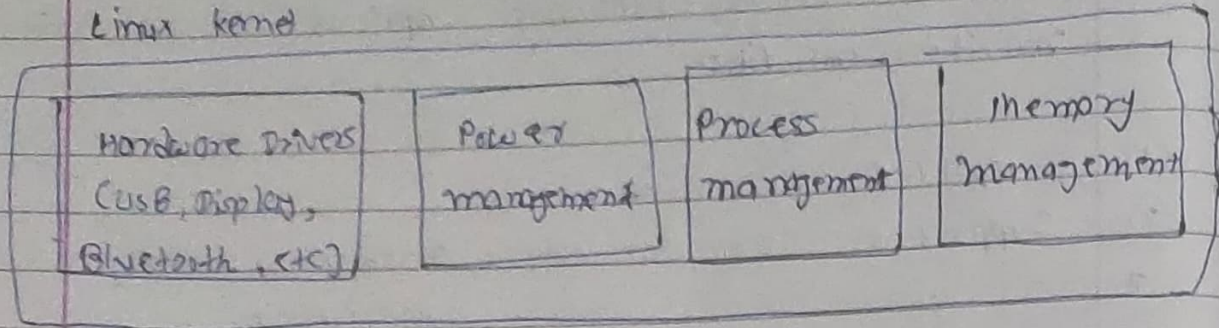 Linux kernel
Hardware Drivers
(USB, Display,
Bluetooth, etc)
Power
management
Process
management
memory
management